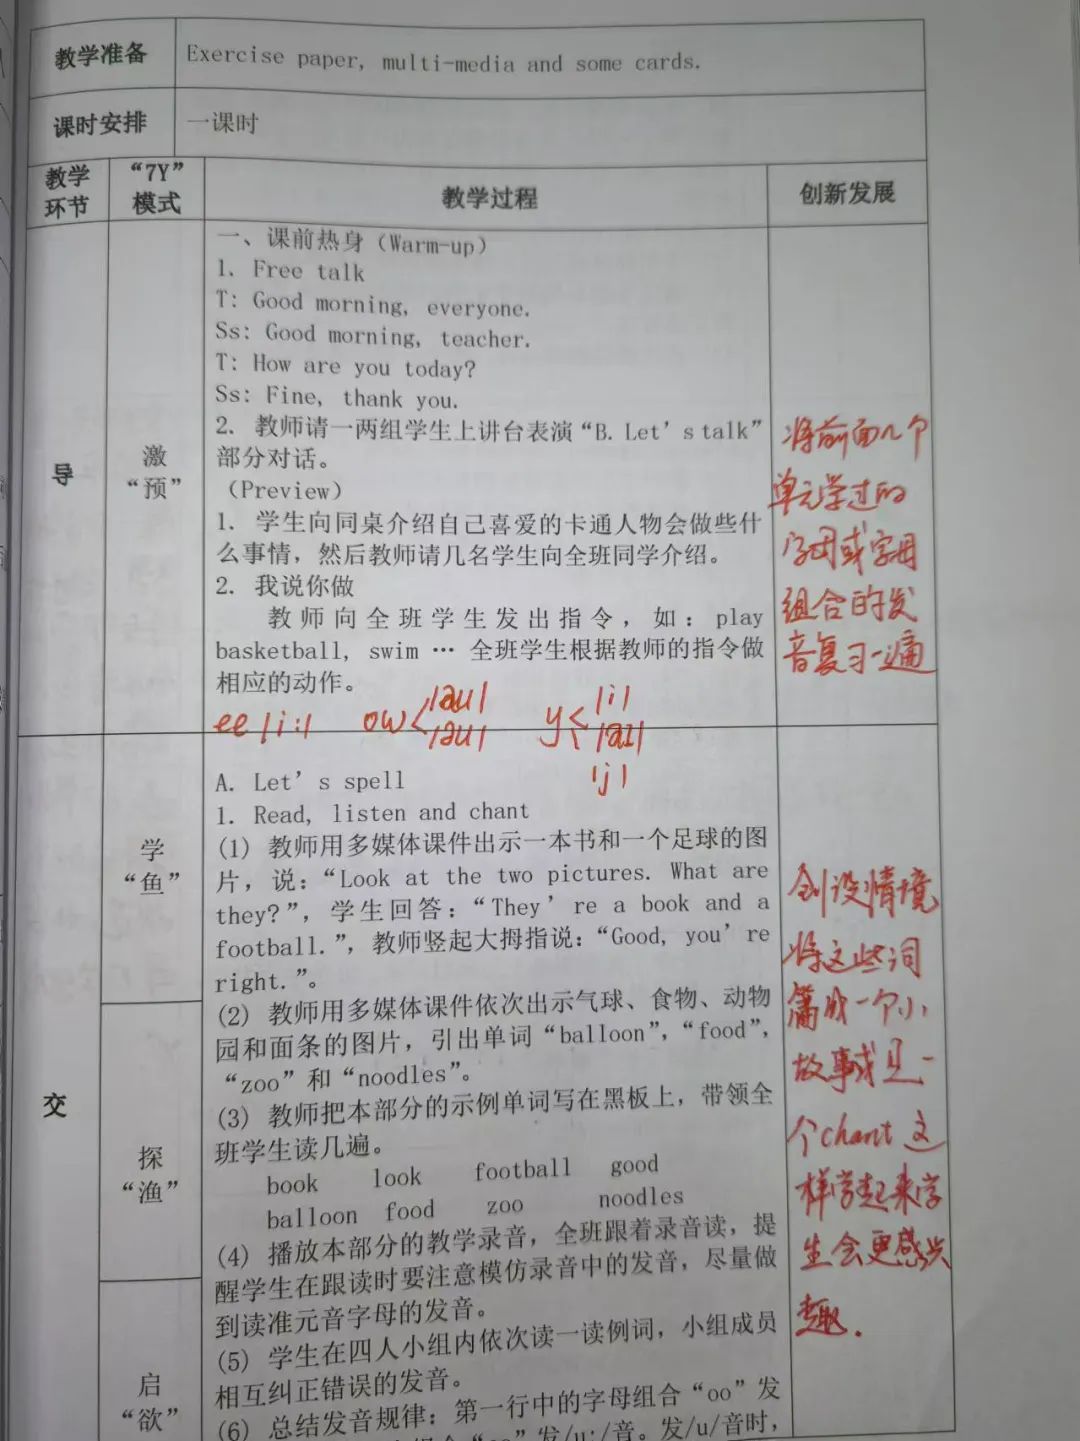 教学准备
Exercise paper, multi-media and some cards.
课时安排
一课时
教学
环节
“7Y”
模式
教学过程
创新发展
导
激
“预”
一、课前热身（Warm-up）
1. Free talk
T: Good morning, everyone.
Ss: Good morning, teacher.
T: How are you today?
Ss: Fine, thank you.
2. 教师请一两组学生上讲台表演“B. Let’s talk”
部分对话。
（Preview）
1. 学生向同桌介绍自己喜爱的卡通人物会做些什
么事情，然后教师请几名学生向全班同学介绍。
2. 我说你做
教师向全班学生发出指令，如：play
basketball, swim … 全班学生根据教师的指令做
相应的动作。
ee /i:/
ow < /au/
/əu/
y < /i/
/ai/
/j/
将前面几个
单元学过的
字母或字母
组合的发
音复习一遍
交
学
“鱼”
探
“渔”
启
“欲”
A. Let’s spell
1. Read, listen and chant
(1) 教师用多媒体课件出示一本书和一个足球的图
片，说：“Look at the two pictures. What are
they?”，学生回答：“They’re a book and a
football.”，教师竖起大拇指说：“Good, you’re
right.”。
(2) 教师用多媒体课件依次出示气球、食物、动物
园和面条的图片，引出单词“balloon”，“food”，
“zoo”和“noodles”。
(3) 教师把本部分的示例单词写在黑板上，带领全
班学生读几遍。
book look football good
balloon food zoo noodles
(4) 播放本部分的教学录音，全班跟着录音读，提
醒学生在跟读时要注意模仿录音中的发音，尽量做
到读准元音字母的发音。
(5) 学生在四人小组内依次读一读例词，小组成员
相互纠正错误的发音。
(6) 总结发音规律：第一行中的字母组合“oo”发
“oo”发/u:/音。发/u/音时，
创设情境
将这些词
编成一个小
故事或是一
个chant 这
样学起来学
生会更感兴
趣.